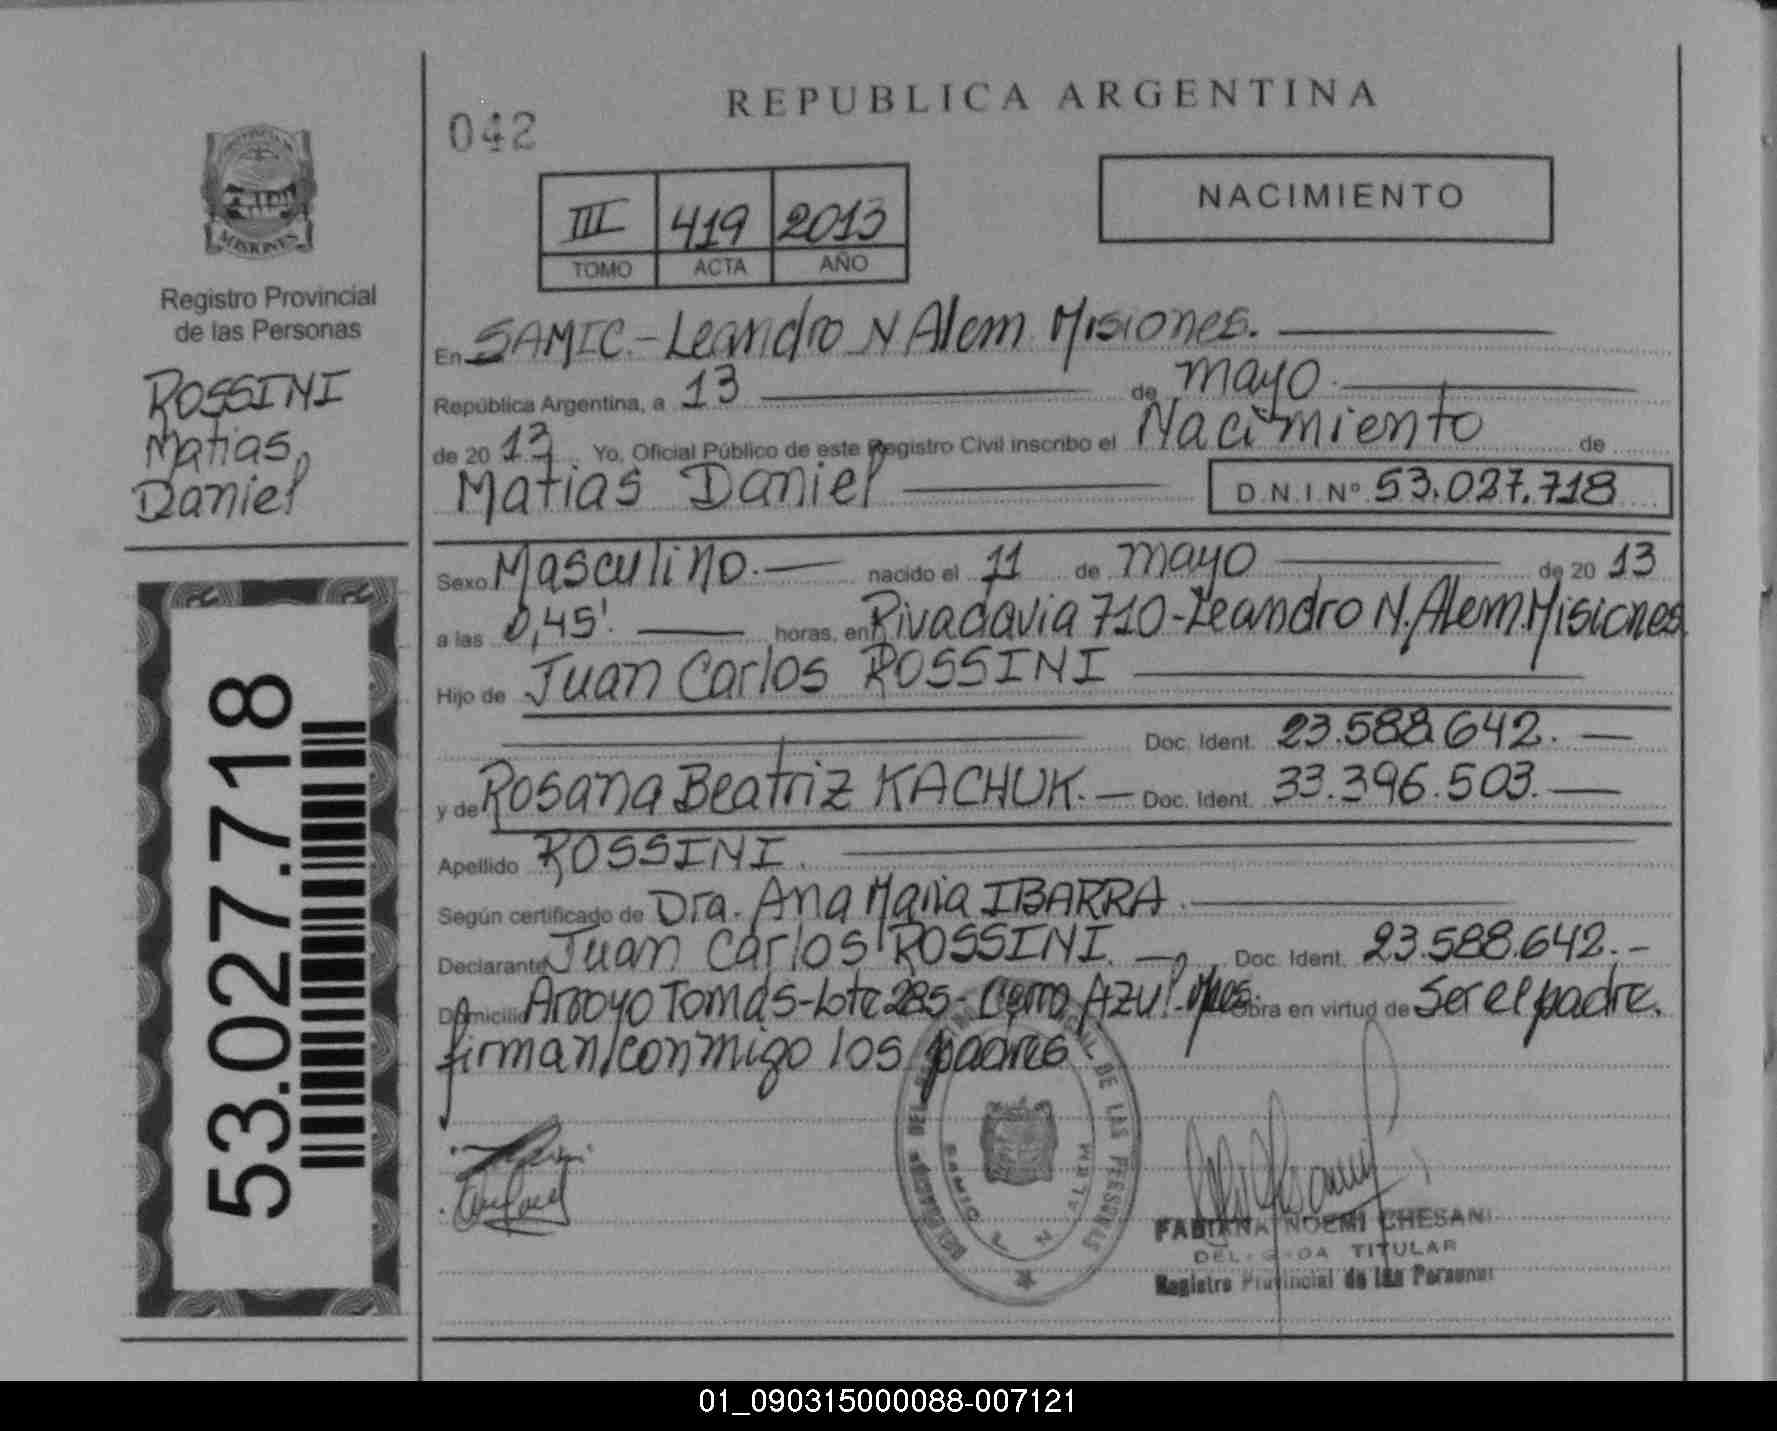 REPUBLICA ARGENTINA
042
NACIMIENTO
III 419 2013
TOMO ACTA AÑO
MISIONES
Registro Provincial
de las Personas
ROSSINI
Matias
Daniel
53.027.718
En SAMIC.-Leandro N Alem Misiones.
República Argentina, a 13 de mayo
de 20 13 Yo, Oficial Público de este Registro Civil inscribo el Nacimiento de
Matias Daniel D.N.I.Nº 53.027.718
Sexo Masculino. nacido el 11 de mayo de 20 13
a las 0,45'. horas, en Rivadavia 710-Leandro N. Alem. Misiones
Hijo de Juan Carlos ROSSINI
Doc. Ident. 23.588.642.
y de Rosana Beatriz KACHUK. Doc. Ident. 33.396.503.
Apellido ROSSINI.
Según certificado de Dra. Ana Maria IBARRA.
Declarante Juan Carlos ROSSINI. Doc. Ident. 23.588.642.-
Domicilio Arroyo Tomás-Lote 285- Cerro Azul. Mnes. Obra en virtud de Ser el padre.
firman conmigo los padres
DEL DE LAS PERSONAS
SAMIC L N ALEM
FABIANA NOEMI CHESANI
TITULAR
Registro Provincial de las Personas
01_090315000088-007121